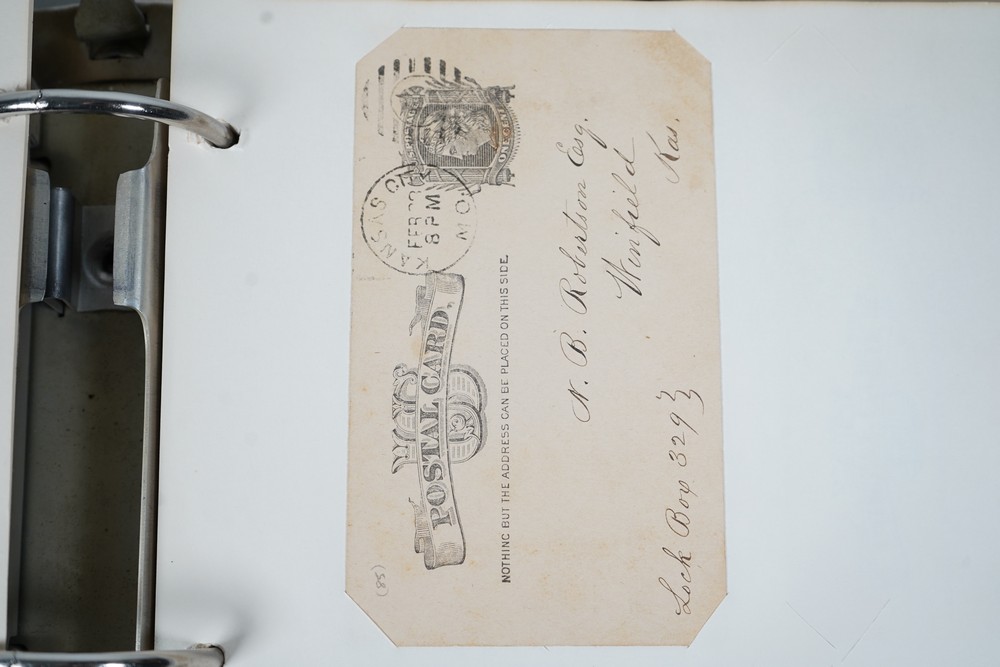 NSAS CI
FEB
8 PM
MO.
ONE CENT
US
POSTAL CARD.
NOTHING BUT THE ADDRESS CAN BE PLACED ON THIS SIDE.
N. B. Robertson Esq.
Winfield
Kas.
Lock Box 329
(85)